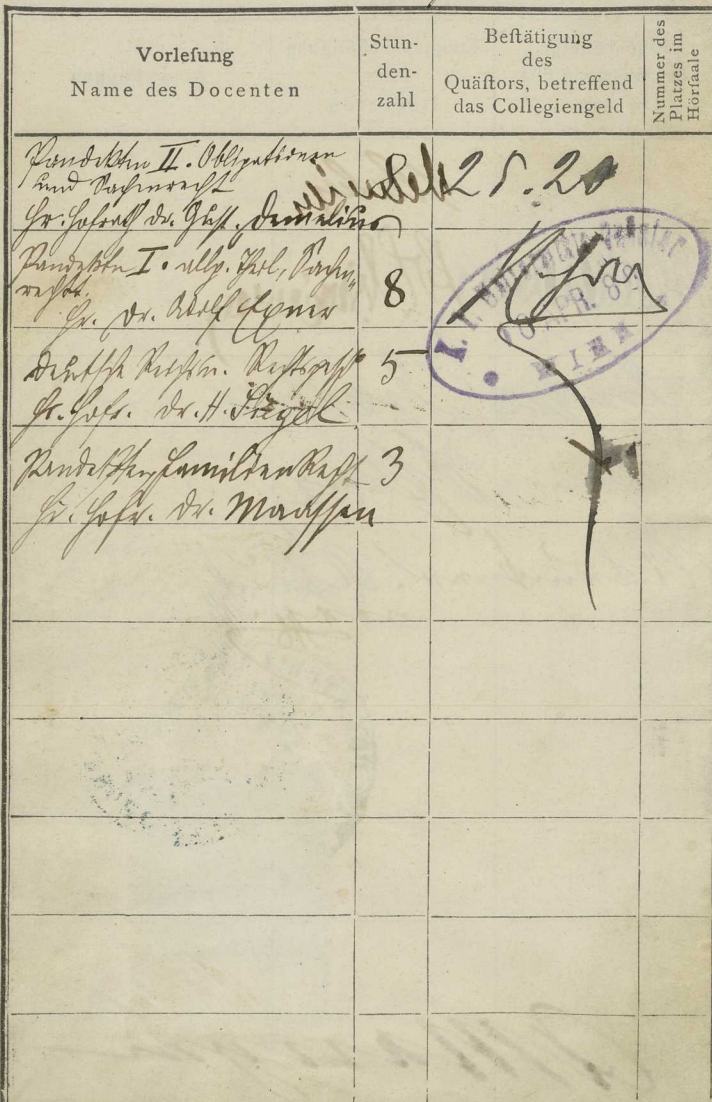 Vorlesung
Name des Docenten
Stun-
den-
zahl
Bestätigung
des
Quästors, betreffend
das Collegiengeld
Nummer des
Platzes im
Hörsaale
Pandekten II. Obligationen
und Sachenrecht
Hr. Hofrath Dr. Gust. Demelius
8
25.20
Pandekten I. allg. Theil, Sachen-
recht.
Hr. Dr. Adolf Exner
8
deutsche Reichs u. Rechtsgesch
Hr. Hofr. Dr. H. Siegel
5
Pandekten, Familien Recht
Hr. Hofr. Dr. Maassen
3
K. K. Universitäts-Quästur
APR. 8
WIEN